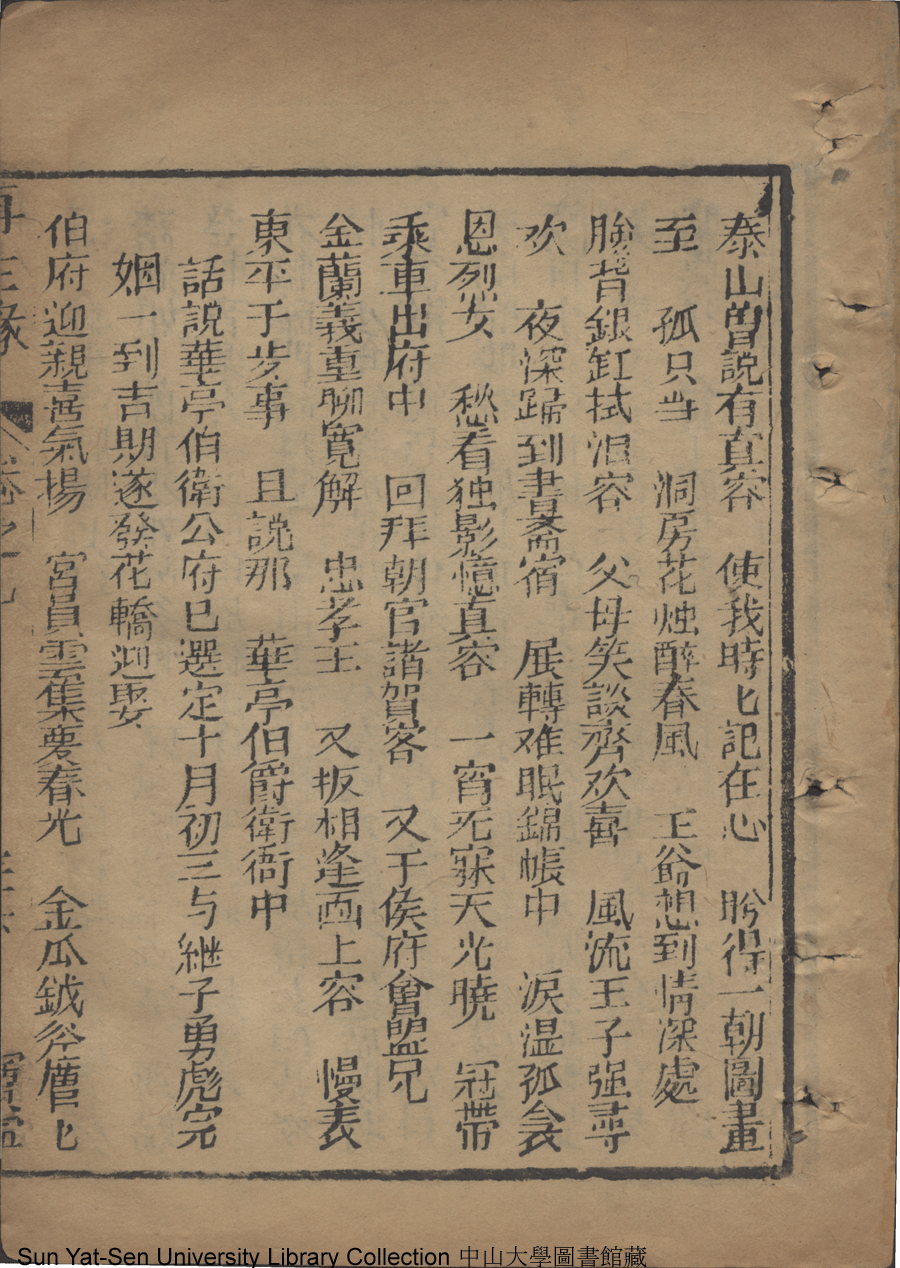 泰山曽説有真容　使我時匕記在心　盻得一朝圖畫
至　孤只当　洞房花烛醉春風　王爺想到情深處
背銀缸拭泪容　父母笑談齊欢喜　風流王子强尋
欢　夜深歸到書斎宿　展轉难眠錦帳中　淚湿孤衾
恩烈女　愁看独影憶真容　一宵无寐天光曉　冠帶
乘車出府中　回拜朝官諸賀客　又于侯府會盟兄
金蘭義重聊寛解　忠孝王　又扳相逢画上容　慢表
東平于歩事　且説那　華亭伯爵衛衙中
話説華亭伯衛公府已選定十月初三与継子勇彪完
姻一到吉期遂發花轎迎娶
伯府迎親喜氣揚　官員雲集慶春光　金瓜鉞斧層匕
再生縁　卷之九
Sun Yat-Sen University Library Collection 中山大學圖書館藏